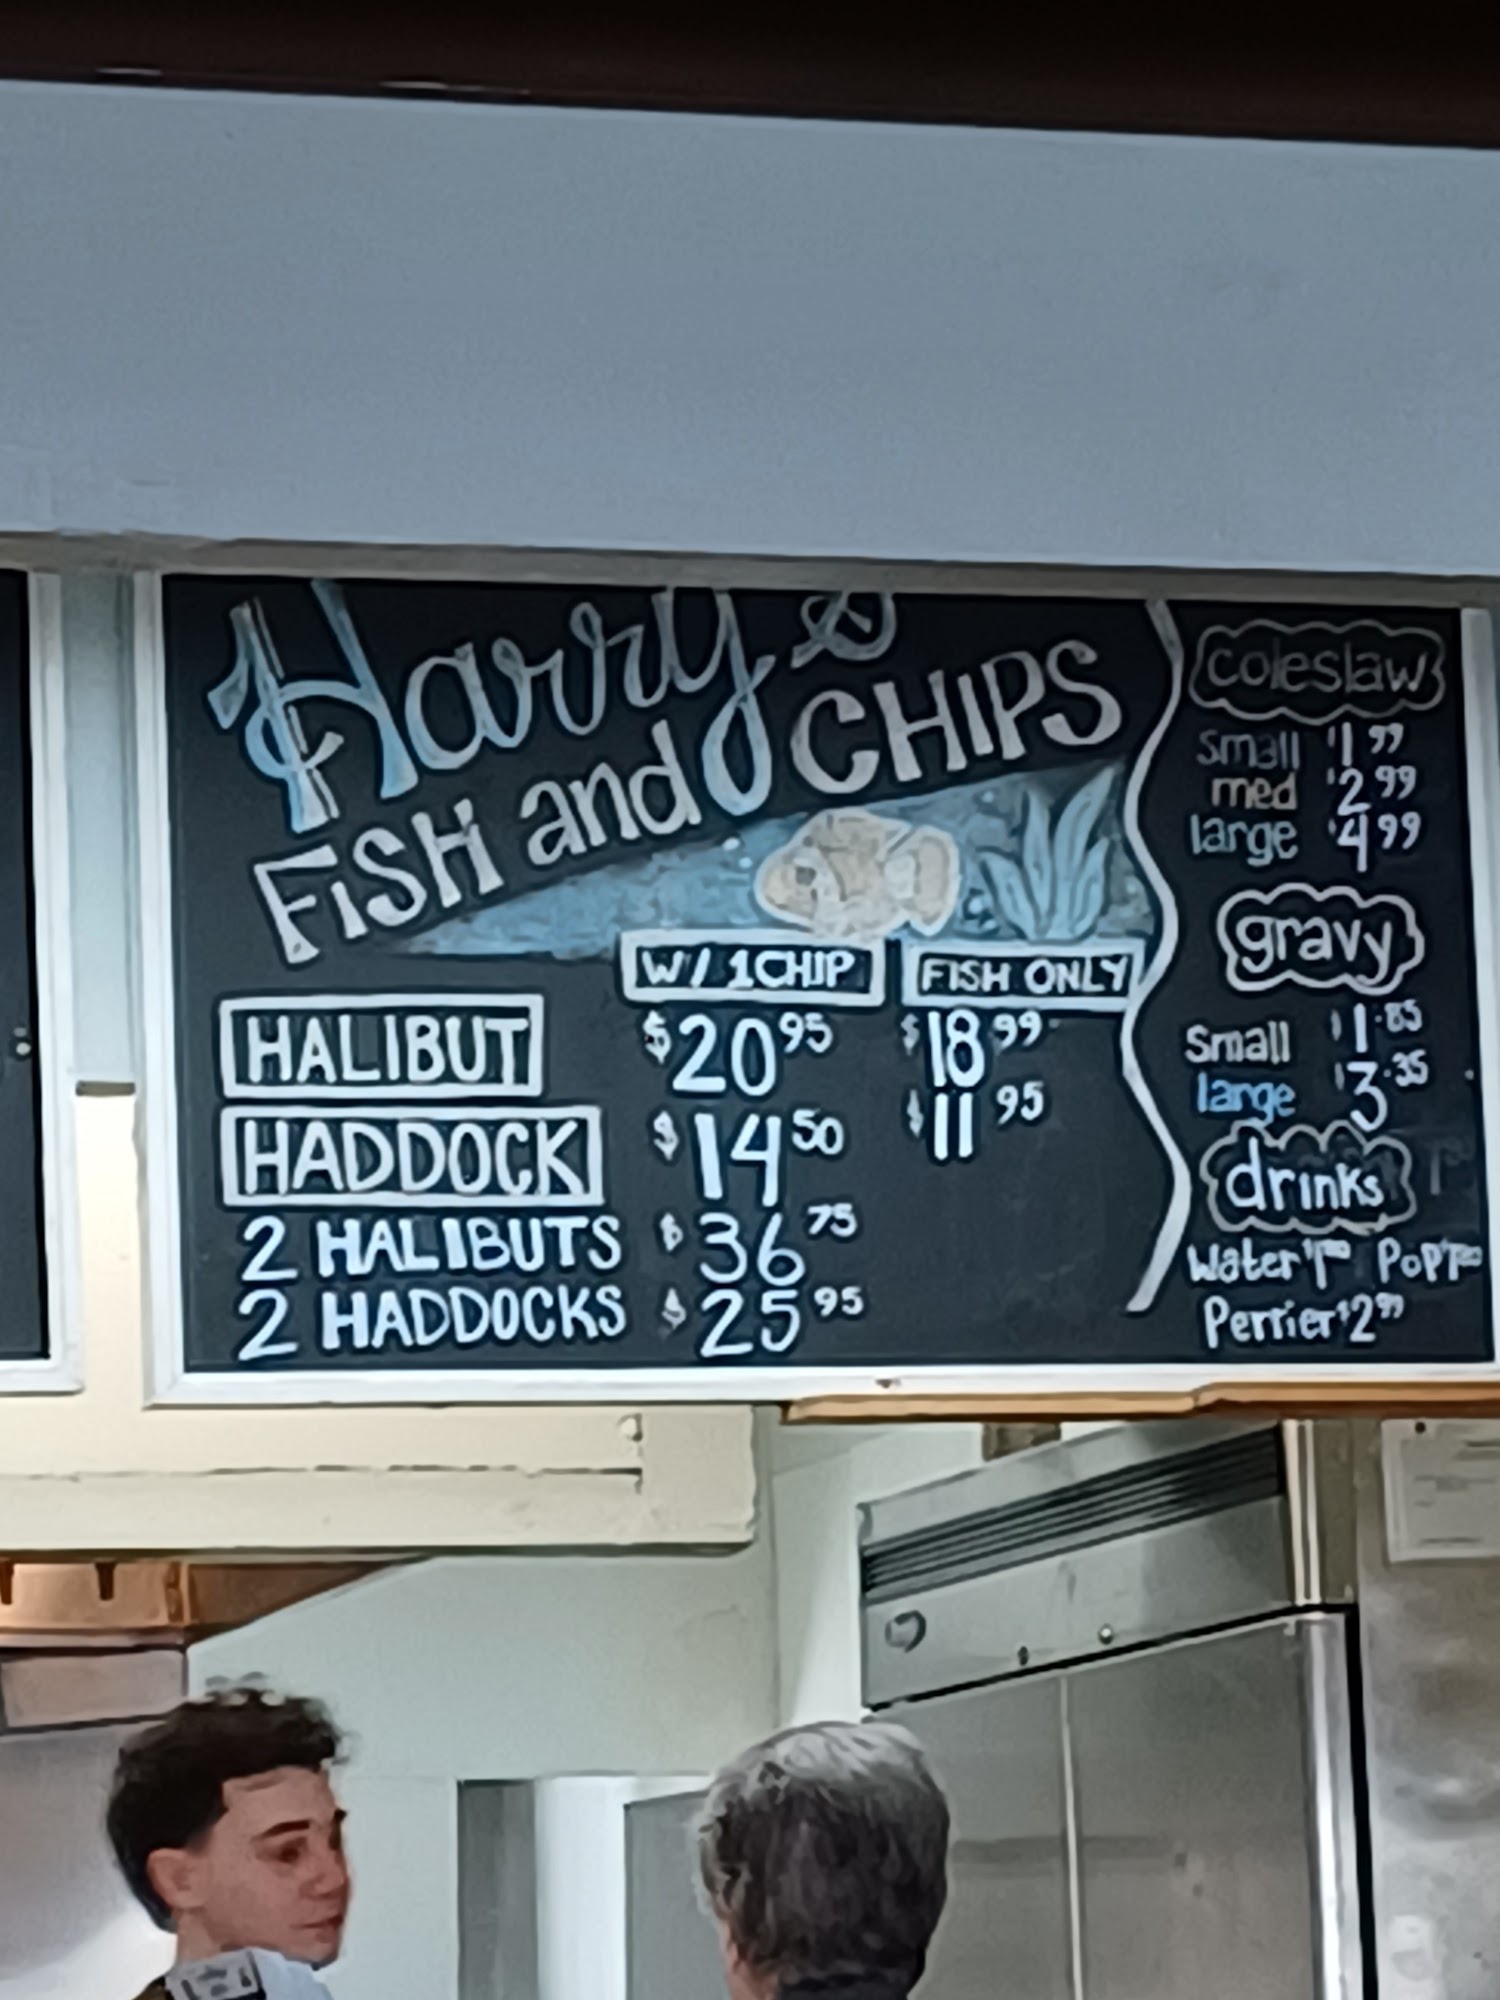 Harry's
FISH and CHIPS
W/ 1 CHIP FISH ONLY
HALIBUT $20.95 $18.99
HADDOCK $14.50 $11.95
2 HALIBUTS $36.75
2 HADDOCKS $25.95
coleslaw
Small $1.99
med $2.99
large $4.99
gravy
Small $1.85
large $3.35
drinks
Water Pop
Perrier $2.99